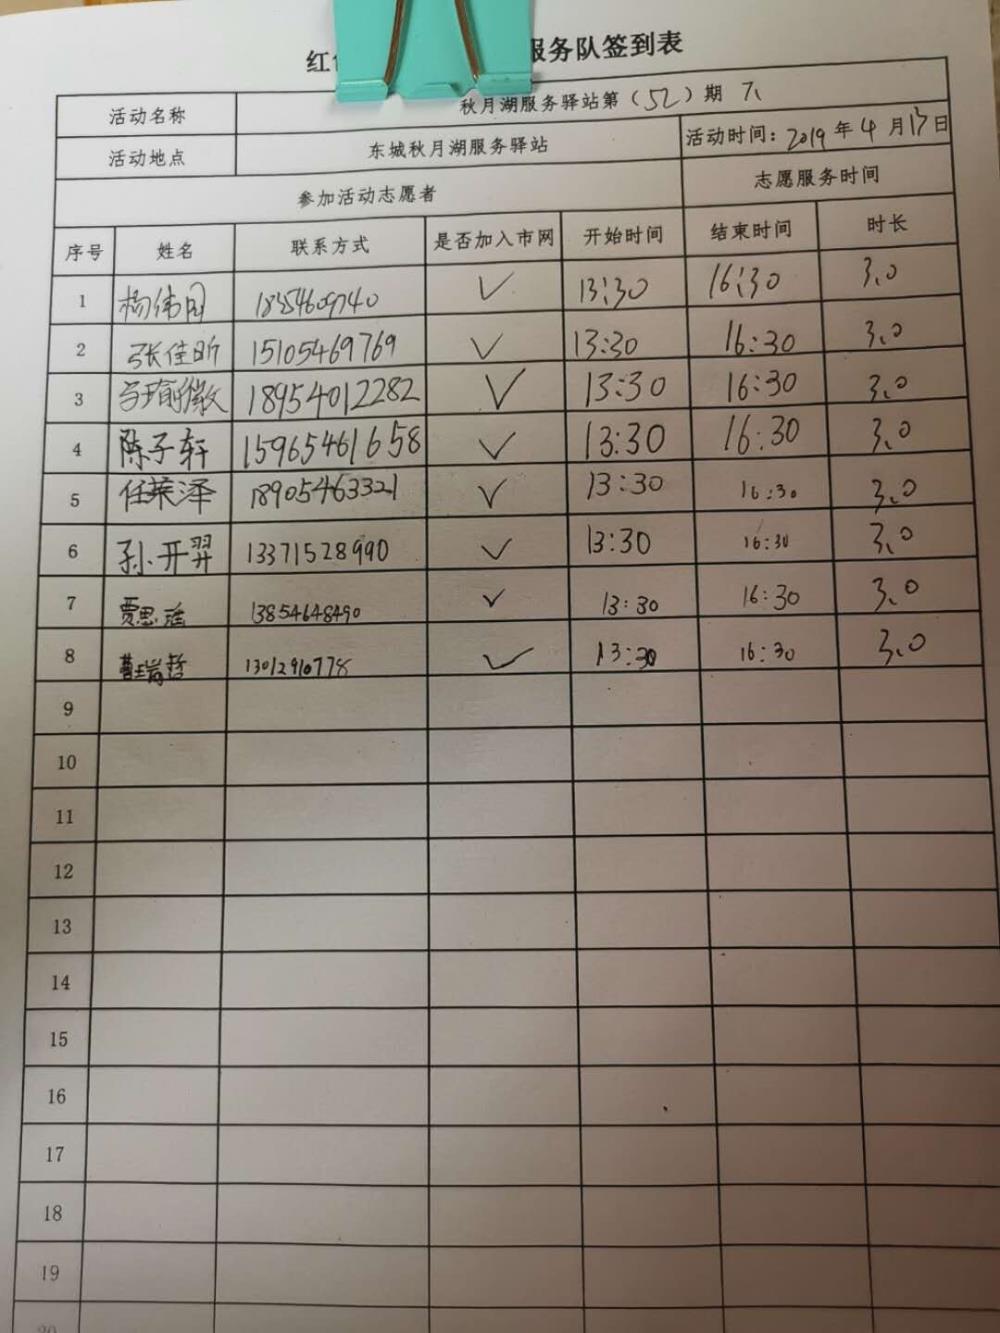 红 服务队签到表
活动名称 秋月湖服务驿站第（52）期 下
活动地点 东城秋月湖服务驿站 活动时间：2019年4月13日
参加活动志愿者 志愿服务时间
序号 姓名 联系方式 是否加入市网 开始时间 结束时间 时长
1 杨伟同 18354609740 ✓ 13:30 16:30 3.0
2 张佳昕 15105469769 ✓ 13:30 16:30 3.0
3 18954012282 ✓ 13:30 16:30 3.0
4 陈子轩 15965461658 ✓ 13:30 16:30 3.0
5 任莱泽 18905463321 ✓ 13:30 16:30 3.0
6 孙开羿 13371528990 ✓ 13:30 16:30 3.0
7 贾思 13854648490 ✓ 13:30 16:30 3.0
8 曹瑞哲 13012910778 ✓ 13:30 16:30 3.0
9
10
11
12
13
14
15
16
17
18
19
20